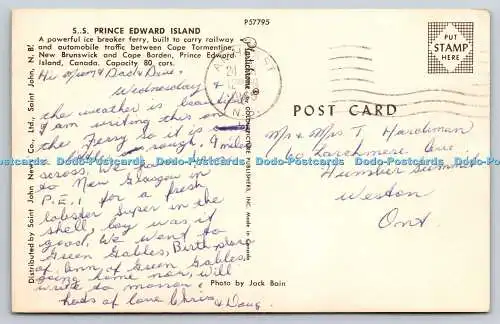 P57795
S.S. PRINCE EDWARD ISLAND
A powerful ice breaker ferry, built to carry railway
and automobile traffic between Cape Tormentine,
New Brunswick and Cape Borden, Prince Edward
Island, Canada. Capacity 80 cars.
Hi Mom & Dad & Dave.
Wednesday &
the weather is beautiful
I am writing this on
the Ferry so it is
rough. 9 miles
across. We
to New Glasgow in
P.E.I for a fresh
lobster super in the
shell, boy was it
good, We went to
Green Gables, Birthplace
of Ann of Green Gables,
being home now, will
write to morrow.
heds of love Chris
& Doug
Distributed by Saint John News Co., Ltd., Saint John, N. B.
Plastichrome by COLOURPICTURE PUBLISHERS, INC.
Made in Canada
Photo by Jack Bain
PUT
STAMP
HERE
N.B.
POST CARD
Mr & Mrs T. Hardiman
60 Larchmere Ave.
Humber Summit
Weston
Ont
Dodo-Postcards Dodo-Postcards Dodo-Postcards Dodo-Postcards Dodo-Postcards